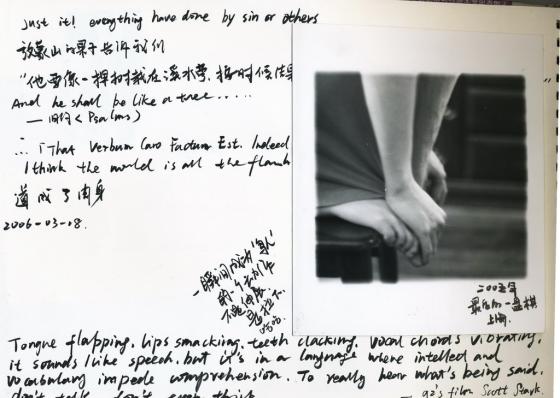 just it! everything have done by sin or others
放 山 的果子告诉我们
"他要像一棵树栽在溪水旁，按时候结果
And he shall be like a tree.....
— 旧约 < Psalms >
∴ "That Verbum Caro Factum Est. Indeed
I think the world is all the
道成了肉身
2006-03-08.
一瞬间成为
的一个
二〇〇五年
最后的一盘棋
上海.
Tongue flapping. Lips smacking. teeth clacking. Vocal chords vibrating.
it sounds like speech. but it's in a language where intellect and
vocabulary impede comprehension. To really hear what's being said.
don't talk. don't even think
— 92's film Scott Stark.